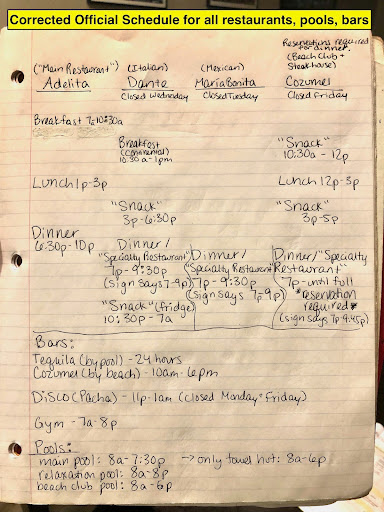 Corrected Official Schedule for all restaurants, pools, bars
Reservations required
for dinner.
("Main Restaurant") (Italian) (Mexican) (Beach Club +
Steakhouse)
Adelita Dante MariaBonita Cozumel
Closed Wednesday Closed Tuesday Closed Friday
Breakfast 7-10:30a
Breakfast
(Continental)
10:30a-1pm
"Snack"
10:30a - 12p
Lunch 1p-3p Lunch 12p-3p
"Snack"
3p-6:30p
"Snack"
3p-5p
Dinner
6:30p-10p
Dinner/
"Specialty Restaurant"
7p-9:30p
(sign says 7-9p)
Dinner/
"Specialty Restaurant"
7p-9:30p
(sign says 7p-9p)
Dinner/"Specialty
Restaurant"
7p-until full
*reservation
required*
(sign says 7p-9:45p)
"Snack" (fridge)
10:30p - 7a
Bars:
Tequila (by pool) - 24 hours
Cozumel (by beach) - 10am-6pm
Disco (Pacha) - 11p-1am (closed Monday + Friday)
Gym - 7a-8p
Pools:
main pool: 8a-7:30p → only towel hut: 8a-6p
relaxation pool: 8a-8p
beach club pool: 8a-6p